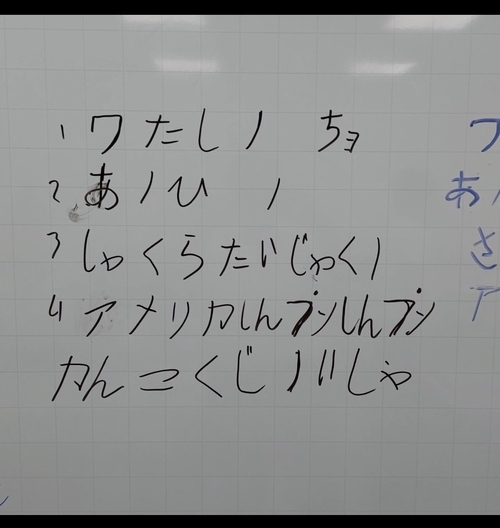 1 ワたしノ ちョ
2 あノひ ノ
3 しゃくらたいじゃくノ
4 アメリカしんブンしんブン
カんコくじノバしゃ
ワ
あノ
さ
ア